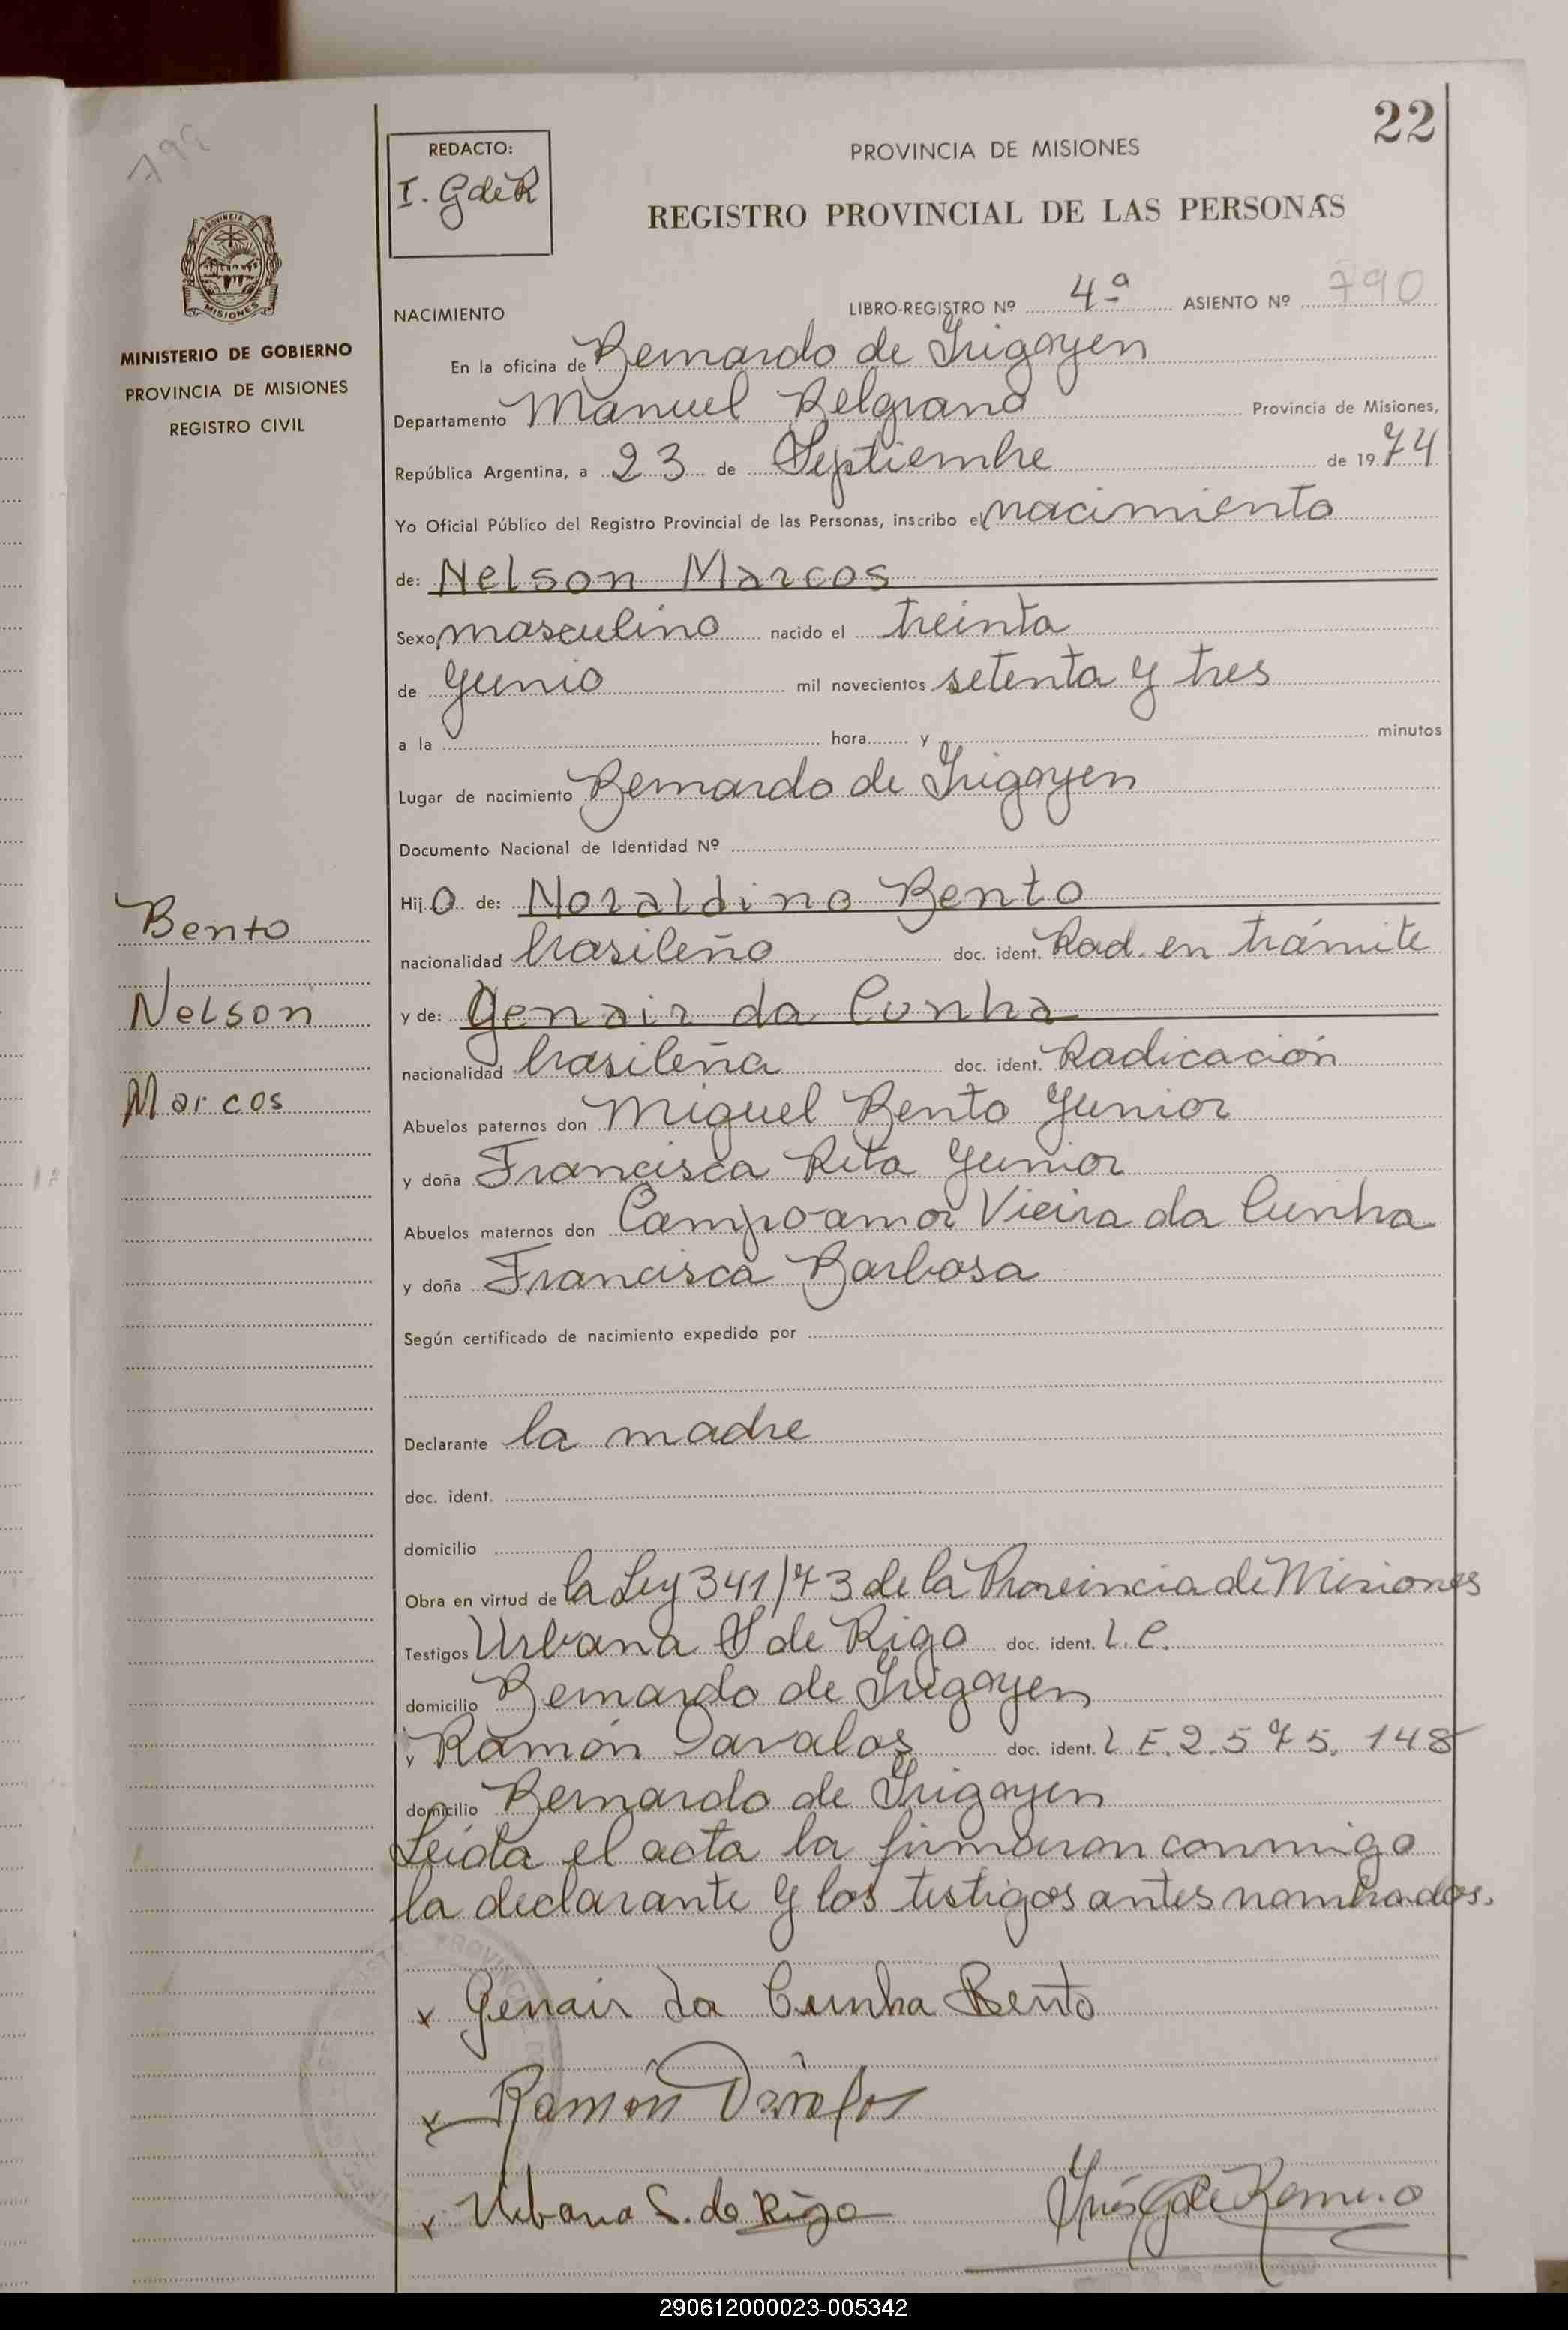 22
799
REDACTO:
I. GdeR
PROVINCIA DE MISIONES
REGISTRO PROVINCIAL DE LAS PERSONAS
PROVINCIA
MISIONES
MINISTERIO DE GOBIERNO
PROVINCIA DE MISIONES
REGISTRO CIVIL
NACIMIENTO LIBRO-REGISTRO Nº 4ª ASIENTO Nº 790
En la oficina de Bernardo de Irigoyen
Departamento Manuel Belgrano Provincia de Misiones,
República Argentina, a 23 de Septiembre de 1974
Yo Oficial Público del Registro Provincial de las Personas, inscribo el nacimiento
de: Nelson Marcos
Sexo masculino nacido el treinta
de Junio mil novecientos setenta y tres
a la hora y minutos
Lugar de nacimiento Bernardo de Irigoyen
Documento Nacional de Identidad Nº
Hijo de: Noraldino Bento
nacionalidad brasileño doc. ident. Rad. en trámite
y de: Genair da Cunha
nacionalidad brasileña doc. ident. Radicación
Abuelos paternos don Miguel Bento Junior
y doña Francisca Rita Junior
Abuelos maternos don Campo-amor Vieira da Cunha
y doña Francisca Barbosa
Según certificado de nacimiento expedido por
Declarante la madre
doc. ident.
domicilio
Obra en virtud de la Ley 341/73 de la Provincia de Misiones
Testigos Urbana S de Rigo doc. ident. L.C.
domicilio Bernardo de Irigoyen
y Ramón Davalos doc. ident. L.E. 2.575.148
domicilio Bernardo de Irigoyen
Leida el acta la firmaron conmigo
la declarante y los testigos antes nombrados.
Bento
Nelson
Marcos
x Genair da Cunha Bento
x Ramón Dávalos
x Urbana S. de Rigo
Inés G de Romero
290612000023-005342